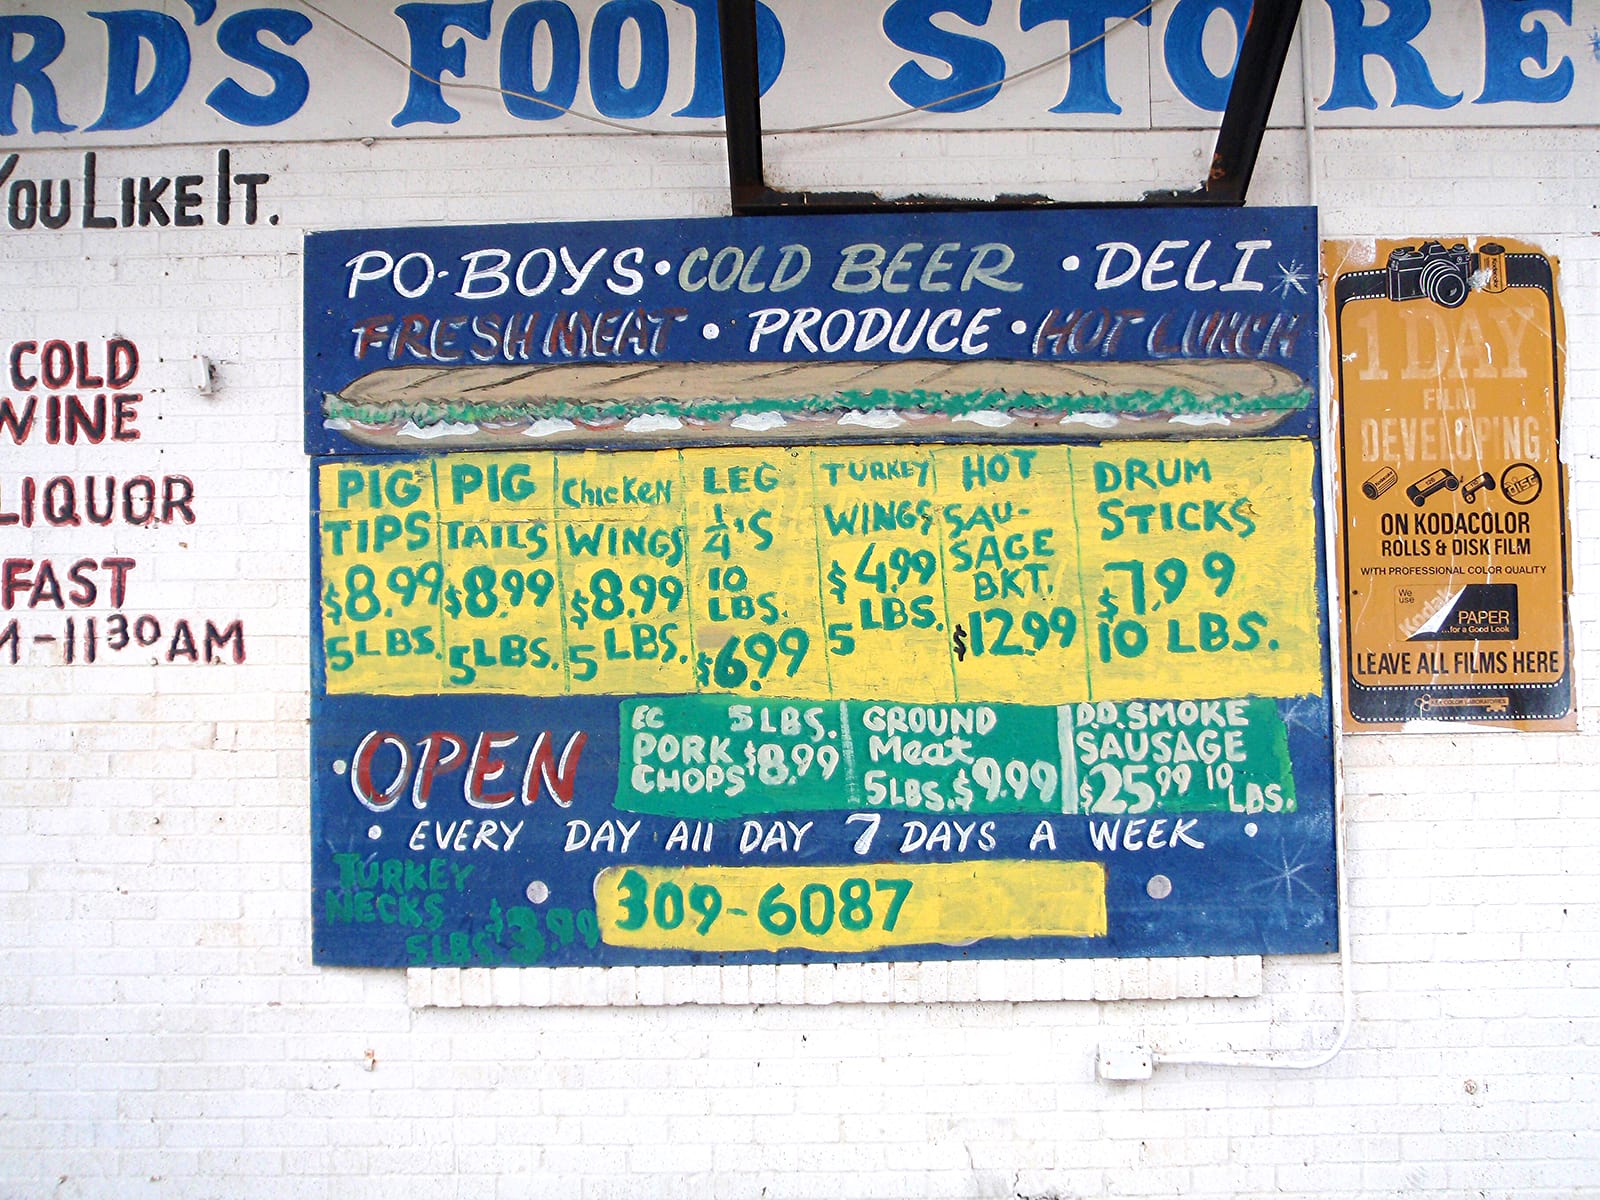 RD'S FOOD STORE
YOU LIKE IT.
COLD
WINE
LIQUOR
FAST
M-11 30 AM
PO-BOYS • COLD BEER • DELI
FRESH MEAT • PRODUCE • HOT LUNCH
PIG
TIPS
$8.99
5 LBS.
PIG
TAILS
$8.99
5 LBS.
Chicken
WINGS
$8.99
5 LBS.
LEG
1/4'S
10
LBS.
$6.99
TURKEY
WINGS
$4.99
5 LBS.
HOT
SAU-
SAGE
BKT.
$12.99
DRUM
STICKS
$7.99
10 LBS.
• OPEN
EC 5 LBS.
PORK $8.99
CHOPS
GROUND
Meat
5 LBS. $9.99
D.D. SMOKE
SAUSAGE
$25.99 10
LBS.
• EVERY DAY All DAY 7 DAYS A WEEK •
TURKEY
NECKS
5 LBS. $3.99
309-6087
Kodak
1 DAY
FILM
DEVELOPING
126
110
disc
ON KODACOLOR
ROLLS & DISK FILM
WITH PROFESSIONAL COLOR QUALITY
We
use
Kodak PAPER
...for a Good Look
LEAVE ALL FILMS HERE